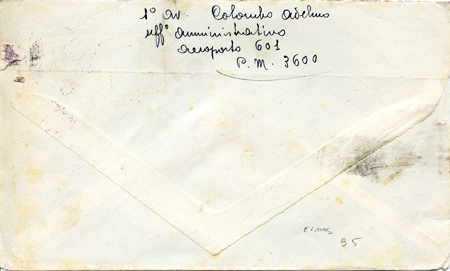 1° av. Colombo Adelmo
uff° amministrativo
aeroporto 601
P. M. 3600
ELMAS
B5